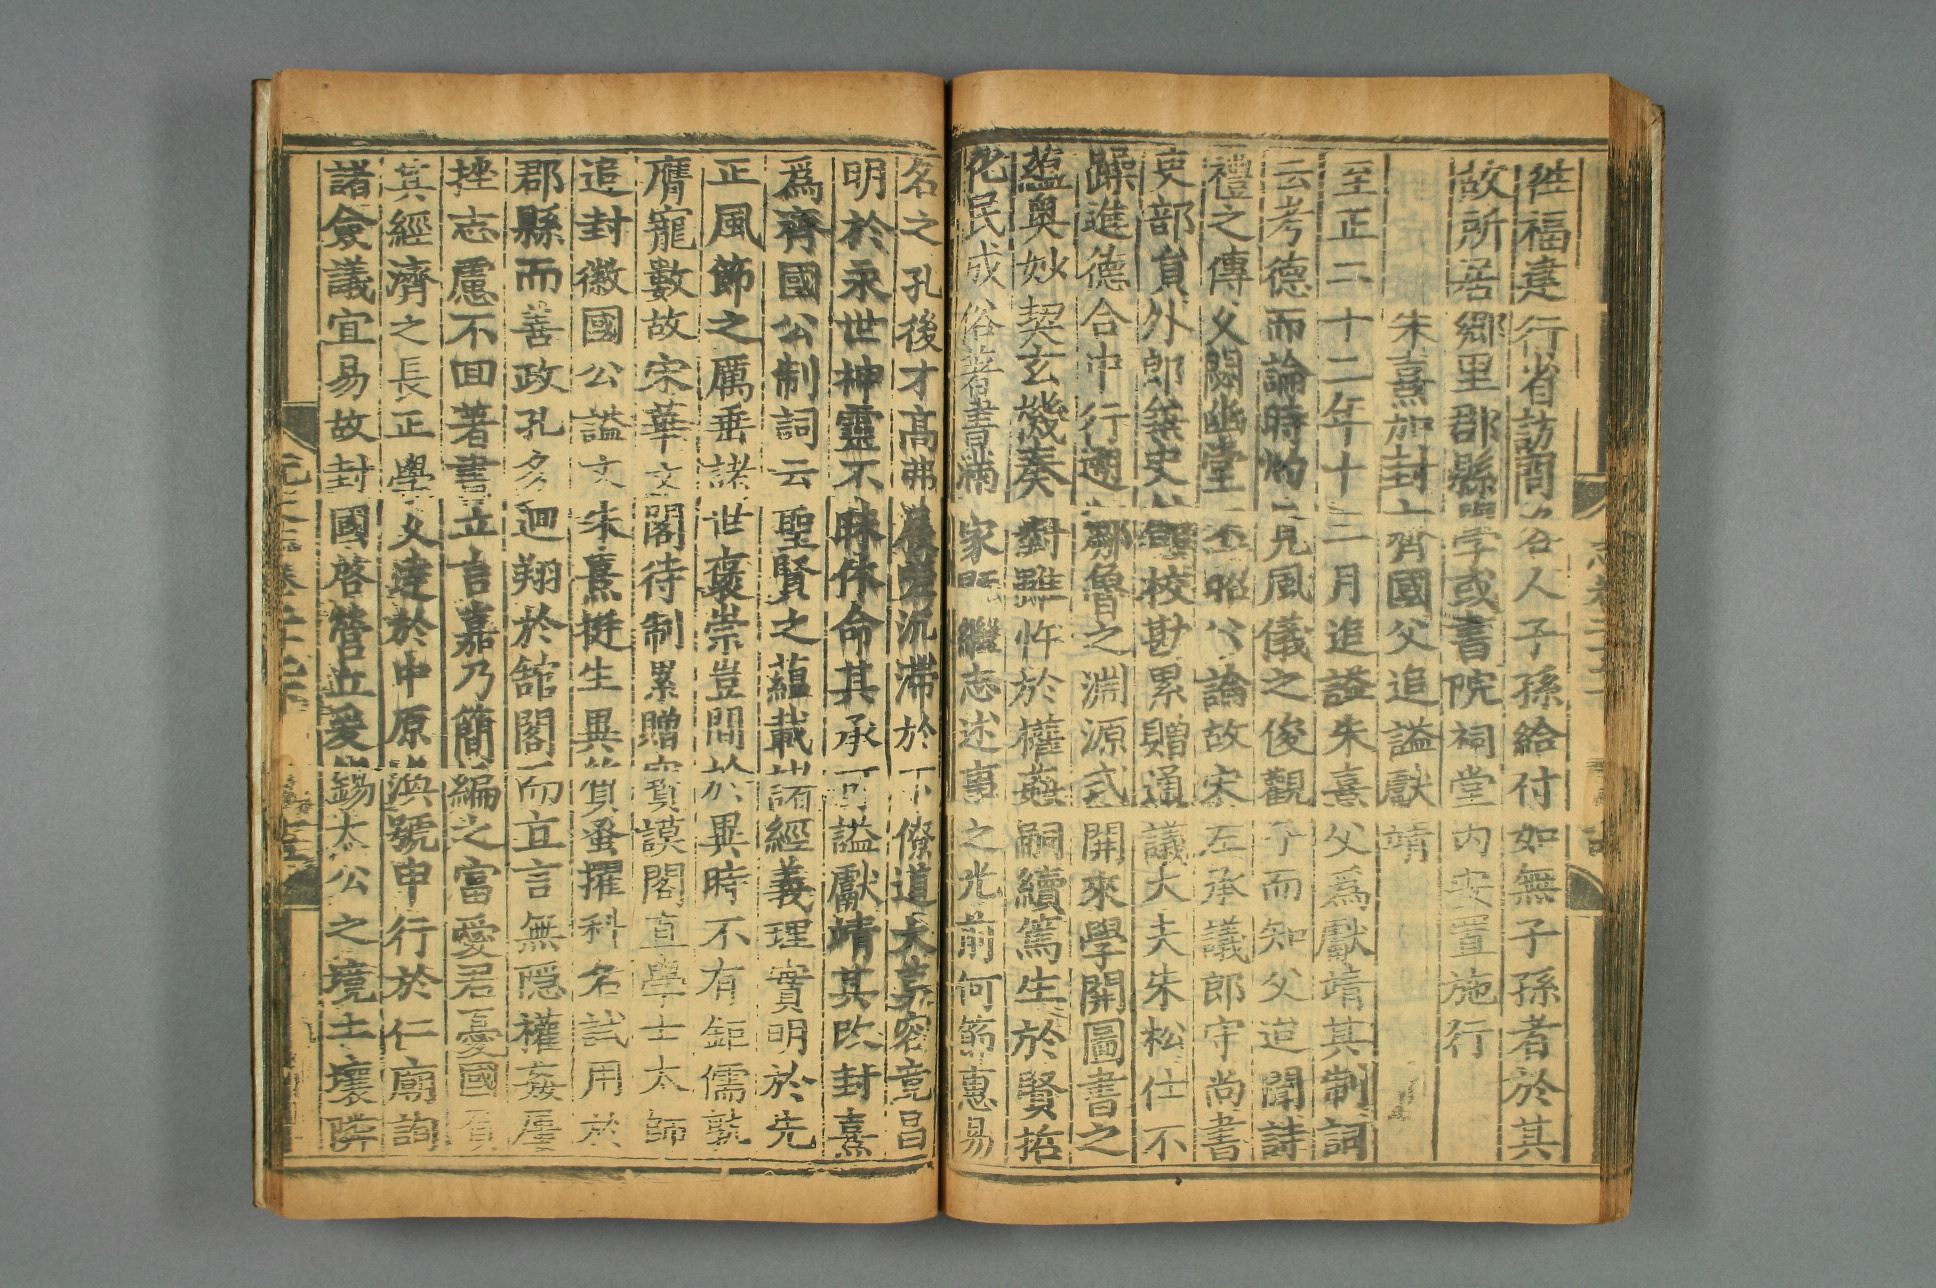 徃福建行省訪問各人子孫給付如無子孫者於其
故所居鄉里郡縣學或書院祠堂內安置施行
朱熹加封齊國父追謚獻靖
至正二十二年十二月追謚朱熹父爲獻靖其制詞
云考德而論時灼見風儀之俊觀子而知父追聞詩
禮之傳父閟幽堂丕昭公論故宋左承議郎守尚書
吏部負外郎兼史館校勘累贈通議大夫朱松仕不
躁進德合中行遡鄒魯之淵源式開來學闡圖書之
蘊奧妙契玄機奏對雖忤於權姦嗣續篤生於賢哲
化民成俗著書滿家既繼志述事之光前何節惠易
名之孔後才高弗展嗟沉滯於下僚道大莫容竟昌
明於永世神靈不昧休命其承可謚獻靖其改封熹
爲齊國公制詞云聖賢之蘊載諸經義理實明於先
正風節之厲垂諸世褒崇豈間於異時不有鉅儒孰
膺寵數故宋華文閣待制累贈寶謨閣直學士太師
追封徽國公謚文朱熹挺生異質蚤擢科名試用於
郡縣而善政孔多迴翔於舘閣而直言無隱權姦屢
挫志慮不回著書立言嘉乃簡編之富愛君憂國負
其經濟之長正學久達於中原渙號申行於仁廟詢
諸僉議宜易故封國啓營丘爰錫太公之境土壤隣